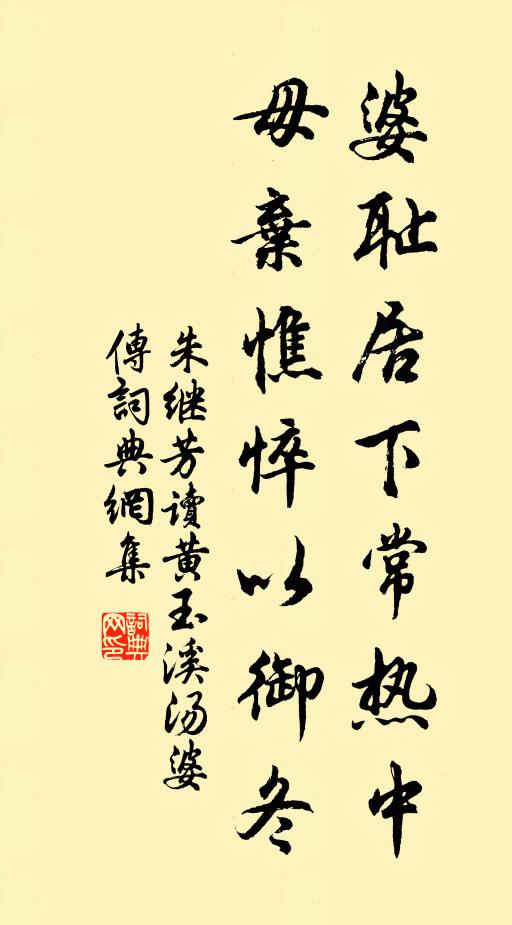 婆耻居下常热中
毋棄憔悴以御冬
朱继芳读黄玉溪汤婆
傳詞典網集
詞典
网印